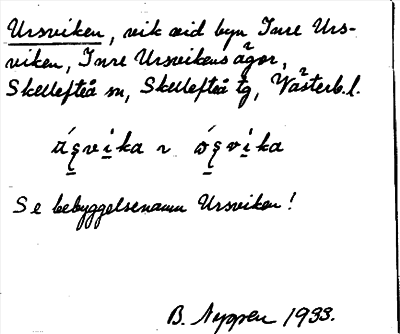 Ursviken, vik vid byn Inre Urs-
viken, Inre Ursvikens ägor,
Skellefteå sn, Skellefteå tg, Västerb.l.
Se bebyggelsenamn Ursviken!
B. 1933.